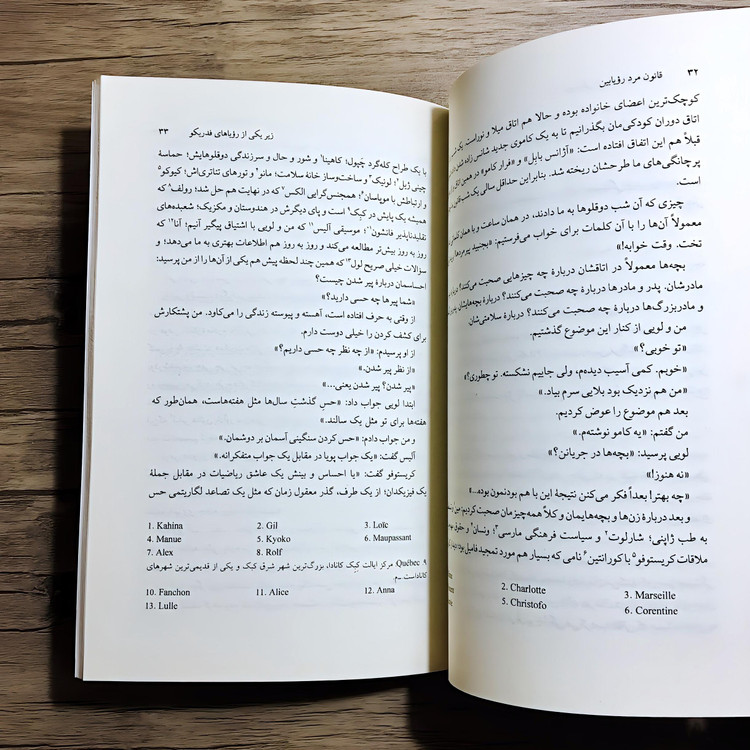 ۳۲ قانون مرد رؤیابین
کوچک‌ترین اعضای خانواده بوده و حالا هم اتاق میلا و نوراست. یک
اتاق دوران کودکی‌مان بگذرانیم تا به یک کاموی جدید شانس زاده شدن
قبلاً هم این اتفاق افتاده است: «آژانس بابل» و «فرار کامو» در همین
پرچانگی‌های ما طرحشان ریخته شد. بنابراین حداقل سالی یک شب
است.
چیزی که آن شب دوقلوها به ما دادند، در همان ساعت و با همان
معمولاً آن‌ها را با آن کلمات برای خواب می‌فرستیم: «بجنبید پیرمردها
تخت. وقت خوابه!»
بچه‌ها معمولاً در اتاقشان دربارهٔ چه چیزهایی صحبت می‌کنند؟
مادرشان. پدر و مادرها دربارهٔ چه صحبت می‌کنند؟ دربارهٔ بچه‌هایشان
و مادربزرگ‌ها دربارهٔ چه صحبت می‌کنند؟ دربارهٔ سلامتی‌شان.
من و لویی از کنار این موضوع گذشتیم.
«تو خوبی؟»
«خوبم. کمی آسیب دیده‌م، ولی جاییم نشکسته. تو چطوری؟»
«من هم نزدیک بود بلایی سرم بیاد.»
بعد هم موضوع را عوض کردیم.
من گفتم: «یه کامو نوشته‌م.»
لویی پرسید: «بچه‌ها در جریانن؟»
«نه هنوز!»
«چه بهتر! بعداً فکر می‌کنن نتیجهٔ این با هم بودنمون بوده...»
و بعد دربارهٔ زن‌ها و بچه‌هایمان و کلاً همه‌چیزمان صحبت کردیم:
به طب ژاپنی؛ شارلوت² و سیاست فرهنگی مارسی³؛ ونسان⁴ و حقوق
ملاقات کریستوفو⁵ با کورانتین⁶ نامی که بسیار هم مورد تمجید فامیل بود؛
2. Charlotte 3. Marseille
5. Christofo 6. Corentine
زیر یکی از رؤیاهای فدریکو ۳۳
با یک طراح کله‌گرد چَپول؛ کاهینا¹ و شور و حال و سرزندگی دوقلوهایش؛ حماسهٔ
چینی ژیل²؛ لوئیک³ و ساخت‌وساز خانهٔ سلامت؛ مانو⁴ و تورهای تئاتری‌اش؛ کیوکو⁵
و ارتباطش با موپاسان⁶؛ همجنس‌گرایی الکس⁷ که در نهایت هم حل شد؛ رولف⁸ که
همیشه یک پایش در کبِک⁹ است و پای دیگرش در هندوستان و مکزیک؛ شعبده‌های
تقلیدناپذیر فانشون¹⁰؛ موسیقی آلیس¹¹ که من و لویی با اشتیاق پیگیر آنیم؛ آنا¹² که
روز به روز بیش‌تر مطالعه می‌کند و روز به روز هم اطلاعات بهتری به ما می‌دهد؛ و
سؤالات خیلی صریح لول¹³ که همین چند لحظه پیش هم یکی از آن‌ها را از من پرسید:
احساسمان دربارهٔ پیر شدن چیست؟
«شما پیرها چه حسی دارید؟»
از وقتی به حرف افتاده است، آهسته و پیوسته زندگی را می‌کاود. من پشتکارش
برای کشف کردن را خیلی دوست دارم.
از او پرسیدم: «از چه نظر چه حسی داریم؟»
«از نظر پیر شدن.»
«پیر شدن؟ پیر شدن یعنی...»
ابتدا لویی جواب داد: «حسِ گذشتِ سال‌ها مثل هفته‌هاست، همان‌طور که
هفته‌ها برای تو مثل یک سالند.»
و من جواب دادم: «حس کردن سنگینی آسمان بر دوشمان.»
آلیس گفت: «یک جواب پویا در مقابل یک جواب متفکرانه.»
کریستوفو گفت: «یا احساس و بینش یک عاشق ریاضیات در مقابل جملهٔ
یک فیزیکدان؛ از یک طرف، گذر معقول زمان که مثل یک تصاعد لگاریتمی حس
1. Kahina 2. Gil 3. Loïc
4. Manue 5. Kyoko 6. Maupassant
7. Alex 8. Rolf
۹. Québec مرکز ایالت کِبِک کانادا، بزرگ‌ترین شهر شرق کبک و یکی از قدیمی‌ترین شهرهای
کاناداست. ـ م.
10. Fanchon 11. Alice 12. Anna
13. Lulle